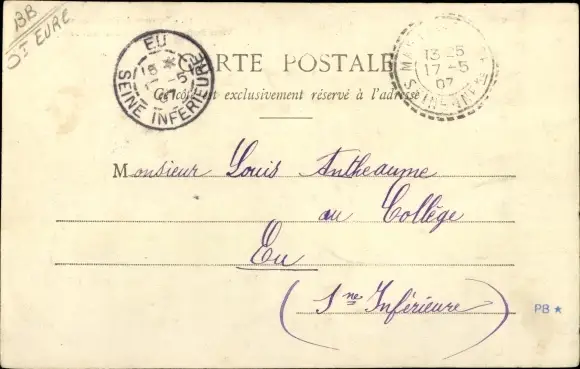 BB
St EURE
EU
SEINE INFÉRIEURE
07
CARTE POSTALE
Ce côté est exclusivement réservé à l'adresse
13 25
17 - 5
07
SEINE-INFRE
Monsieur Louis Antheaume
au Collège
Eu
(Sne Inférieure)
PB ★